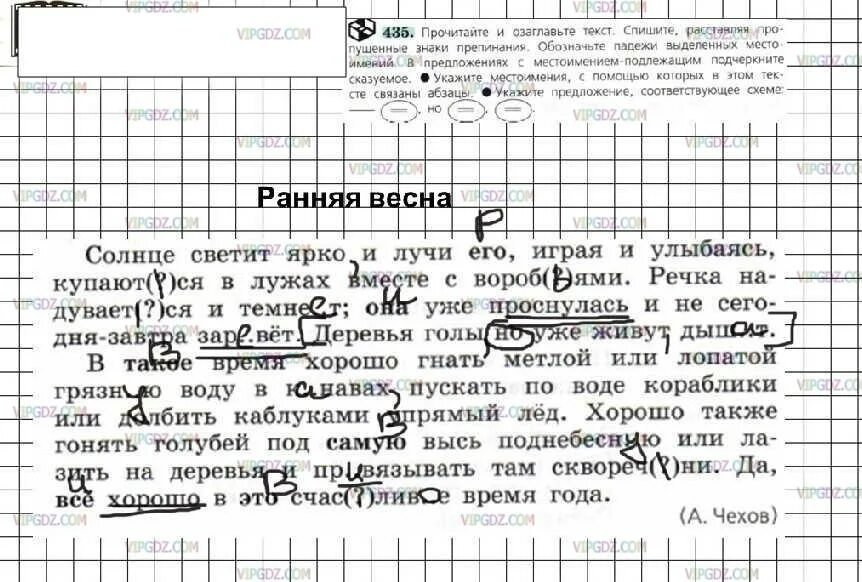 435. Прочитайте и озаглавьте текст. Спишите, расставляя про-
пущенные знаки препинания. Обозначьте падежи выделенных место-
имений. В предложениях с местоимением-подлежащим подчеркните
сказуемое. ● Укажите местоимения, с помощью которых в этом тек-
сте связаны абзацы. ● Укажите предложение, соответствующее схеме:
, но
Ранняя весна
Р
Солнце светит ярко, и лучи его, играя и улыбаясь,
купают(?)ся в лужах вместе с вороб(ь)ями. Речка на-
дувает(?)ся и темнеет; она уже проснулась и не сего-
И
дня-завтра заревёт. [Деревья голы, но уже живут, дышат.]
В
В такое время хорошо гнать метлой или лопатой
грязную воду в канавах, пускать по воде кораблики
или долбить каблуками упрямый лёд. Хорошо также
В
гонять голубей под самую высь поднебесную или ла-
зить на деревья и привязывать там сквореч(?)ни. Да,
И В
всё хорошо в это счас(?)ливое время года.
(А. Чехов)
VIPGDZ.COM